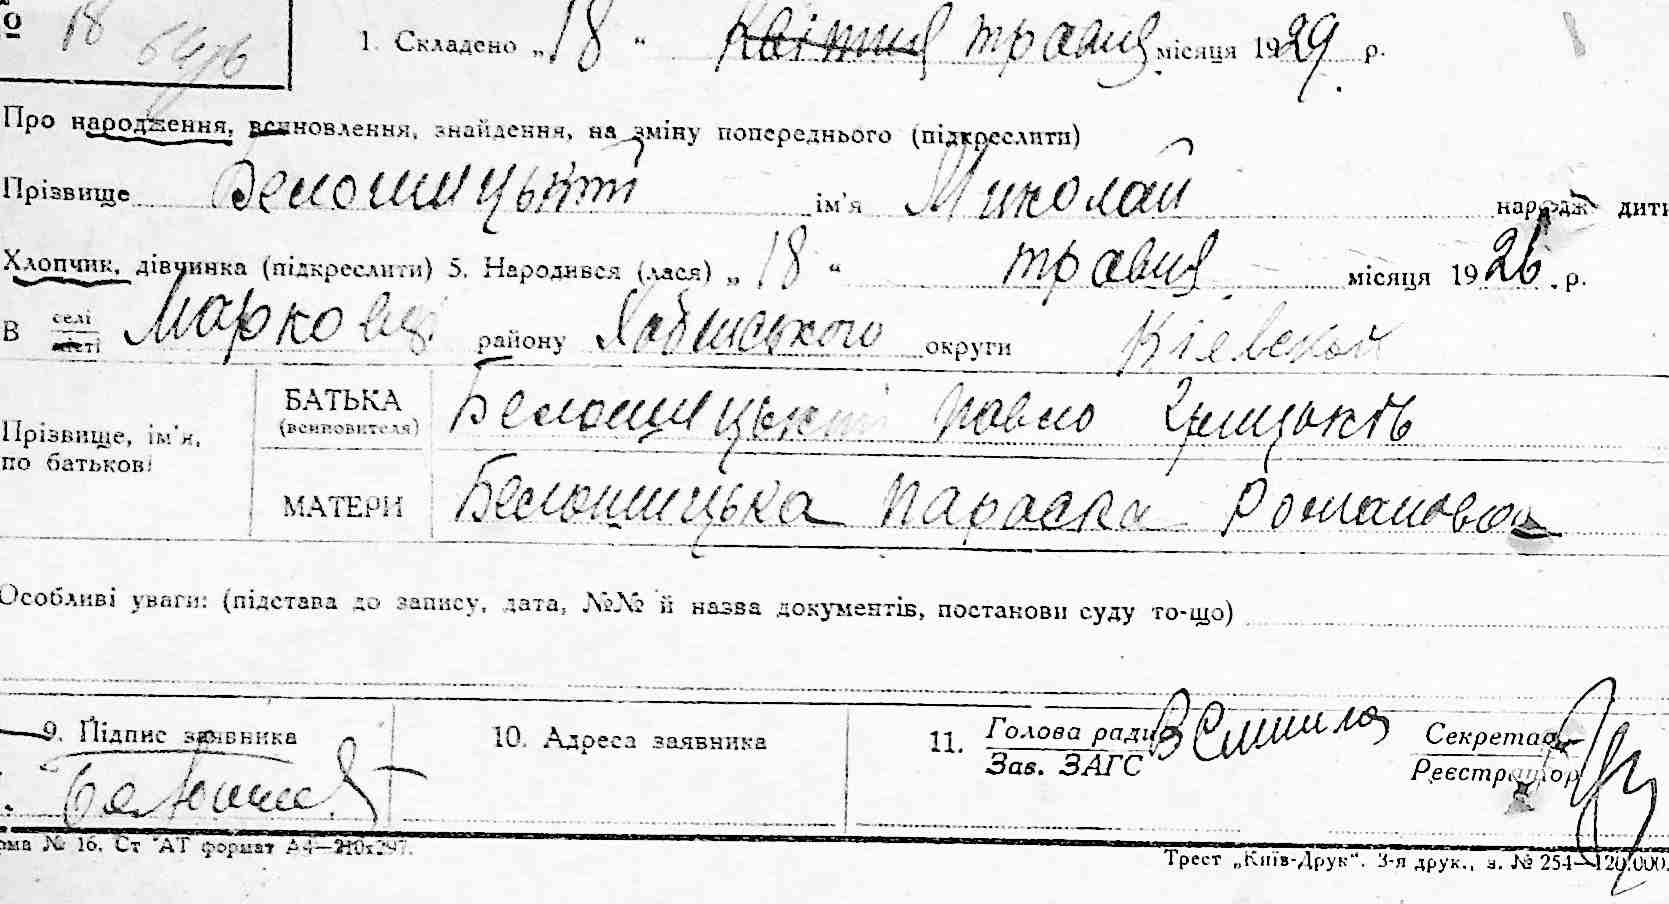 № 18
1. Складено „18“ Квітня травня місяця 1929 р.
Про народження, всиновлення, знайдення, на зміну попереднього (підкреслити)
Прізвище Белошицький ім'я Миколай народж дити
Хлопчик, дівчинка (підкреслити) 5. Народився (лася) „18“ травня місяця 1926 р.
В селі місті Марковці району Хабенського округи Кіевской
Прізвище, ім'я, по батькові
БАТЬКА (всиновителя) Белошицький Павло Грицьків
МАТЕРИ Белошицька Параска Романовна
Особливі уваги: (підстава до запису, дата, №№ й назва документів, постанови суду то-що)
9. Підпис заявника
10. Адреса заявника
11. Голова ради Зав. ЗАГС
Секретар Реєстратор
рма № 16. Ст АТ формат А4—210х297.
Трест „Київ-Друк“. 3-я друк., з. № 254—120.000.